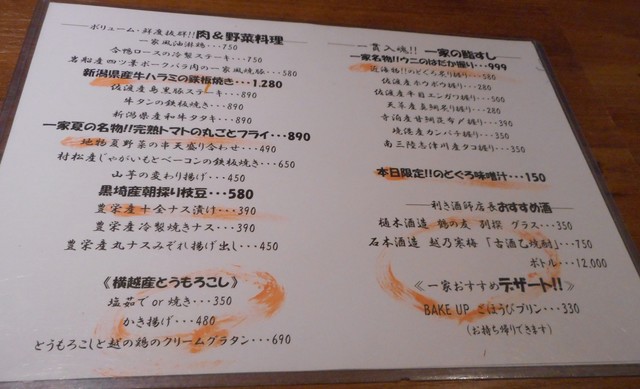 ボリューム・鮮度抜群!! 肉&野菜料理
一家風油淋鶏・・・750
合鴨ロースの冷製ステーキ・・・750
岩船産四ツ葉ポークバラ肉の一家風焼豚・・・580
新潟県産牛ハラミの鉄板焼き・・・1.280
佐渡産島黒豚ステーキ・・・890
牛タンの鉄板焼き・・・890
新潟県産和牛タタキ・・・890
一家夏の名物!!完熟トマトの丸ごとフライ・・・890
地物夏野菜の串天盛り合わせ・・・490
村松産じゃがいもとベーコンの鉄板焼き・・・650
山芋の変わり揚げ・・・450
黒埼産朝採り枝豆・・・580
豊栄産十全ナス漬け・・・390
豊栄産冷製焼きナス・・・390
豊栄産丸ナスみぞれ揚げ出し・・・450
《横越産とうもろこし》
塩茹で or 焼き・・・350
かき揚げ・・・480
とうもろこしと越の鶏のクリームグラタン・・・690
一貫入魂!! 一家の鮨すし
一家名物!!ウニのはだか握り・・・999
近海物!!のどぐろ炙り握り・・・580
佐渡産ホウボウ握り・・・280
佐渡産平目エンガワ握り・・・500
天草産真鯛炙り握り・・・280
寺泊産甘鯛昆布〆握り・・・390
境港産カンパチ握り・・・350
南三陸志津川産タコ握り・・・350
本日限定!!のどぐろ味噌汁・・・150
利き酒師店長おすすめ酒
樋木酒造 鶴の友 別撰 グラス・・・350
石本酒造 越乃寒梅 「古酒乙焼酎」・・・750
ボトル・・・12,000
《一家おすすめデザート!!》
BAKE UP ごほうびプリン・・・330
(お持ち帰りできます)